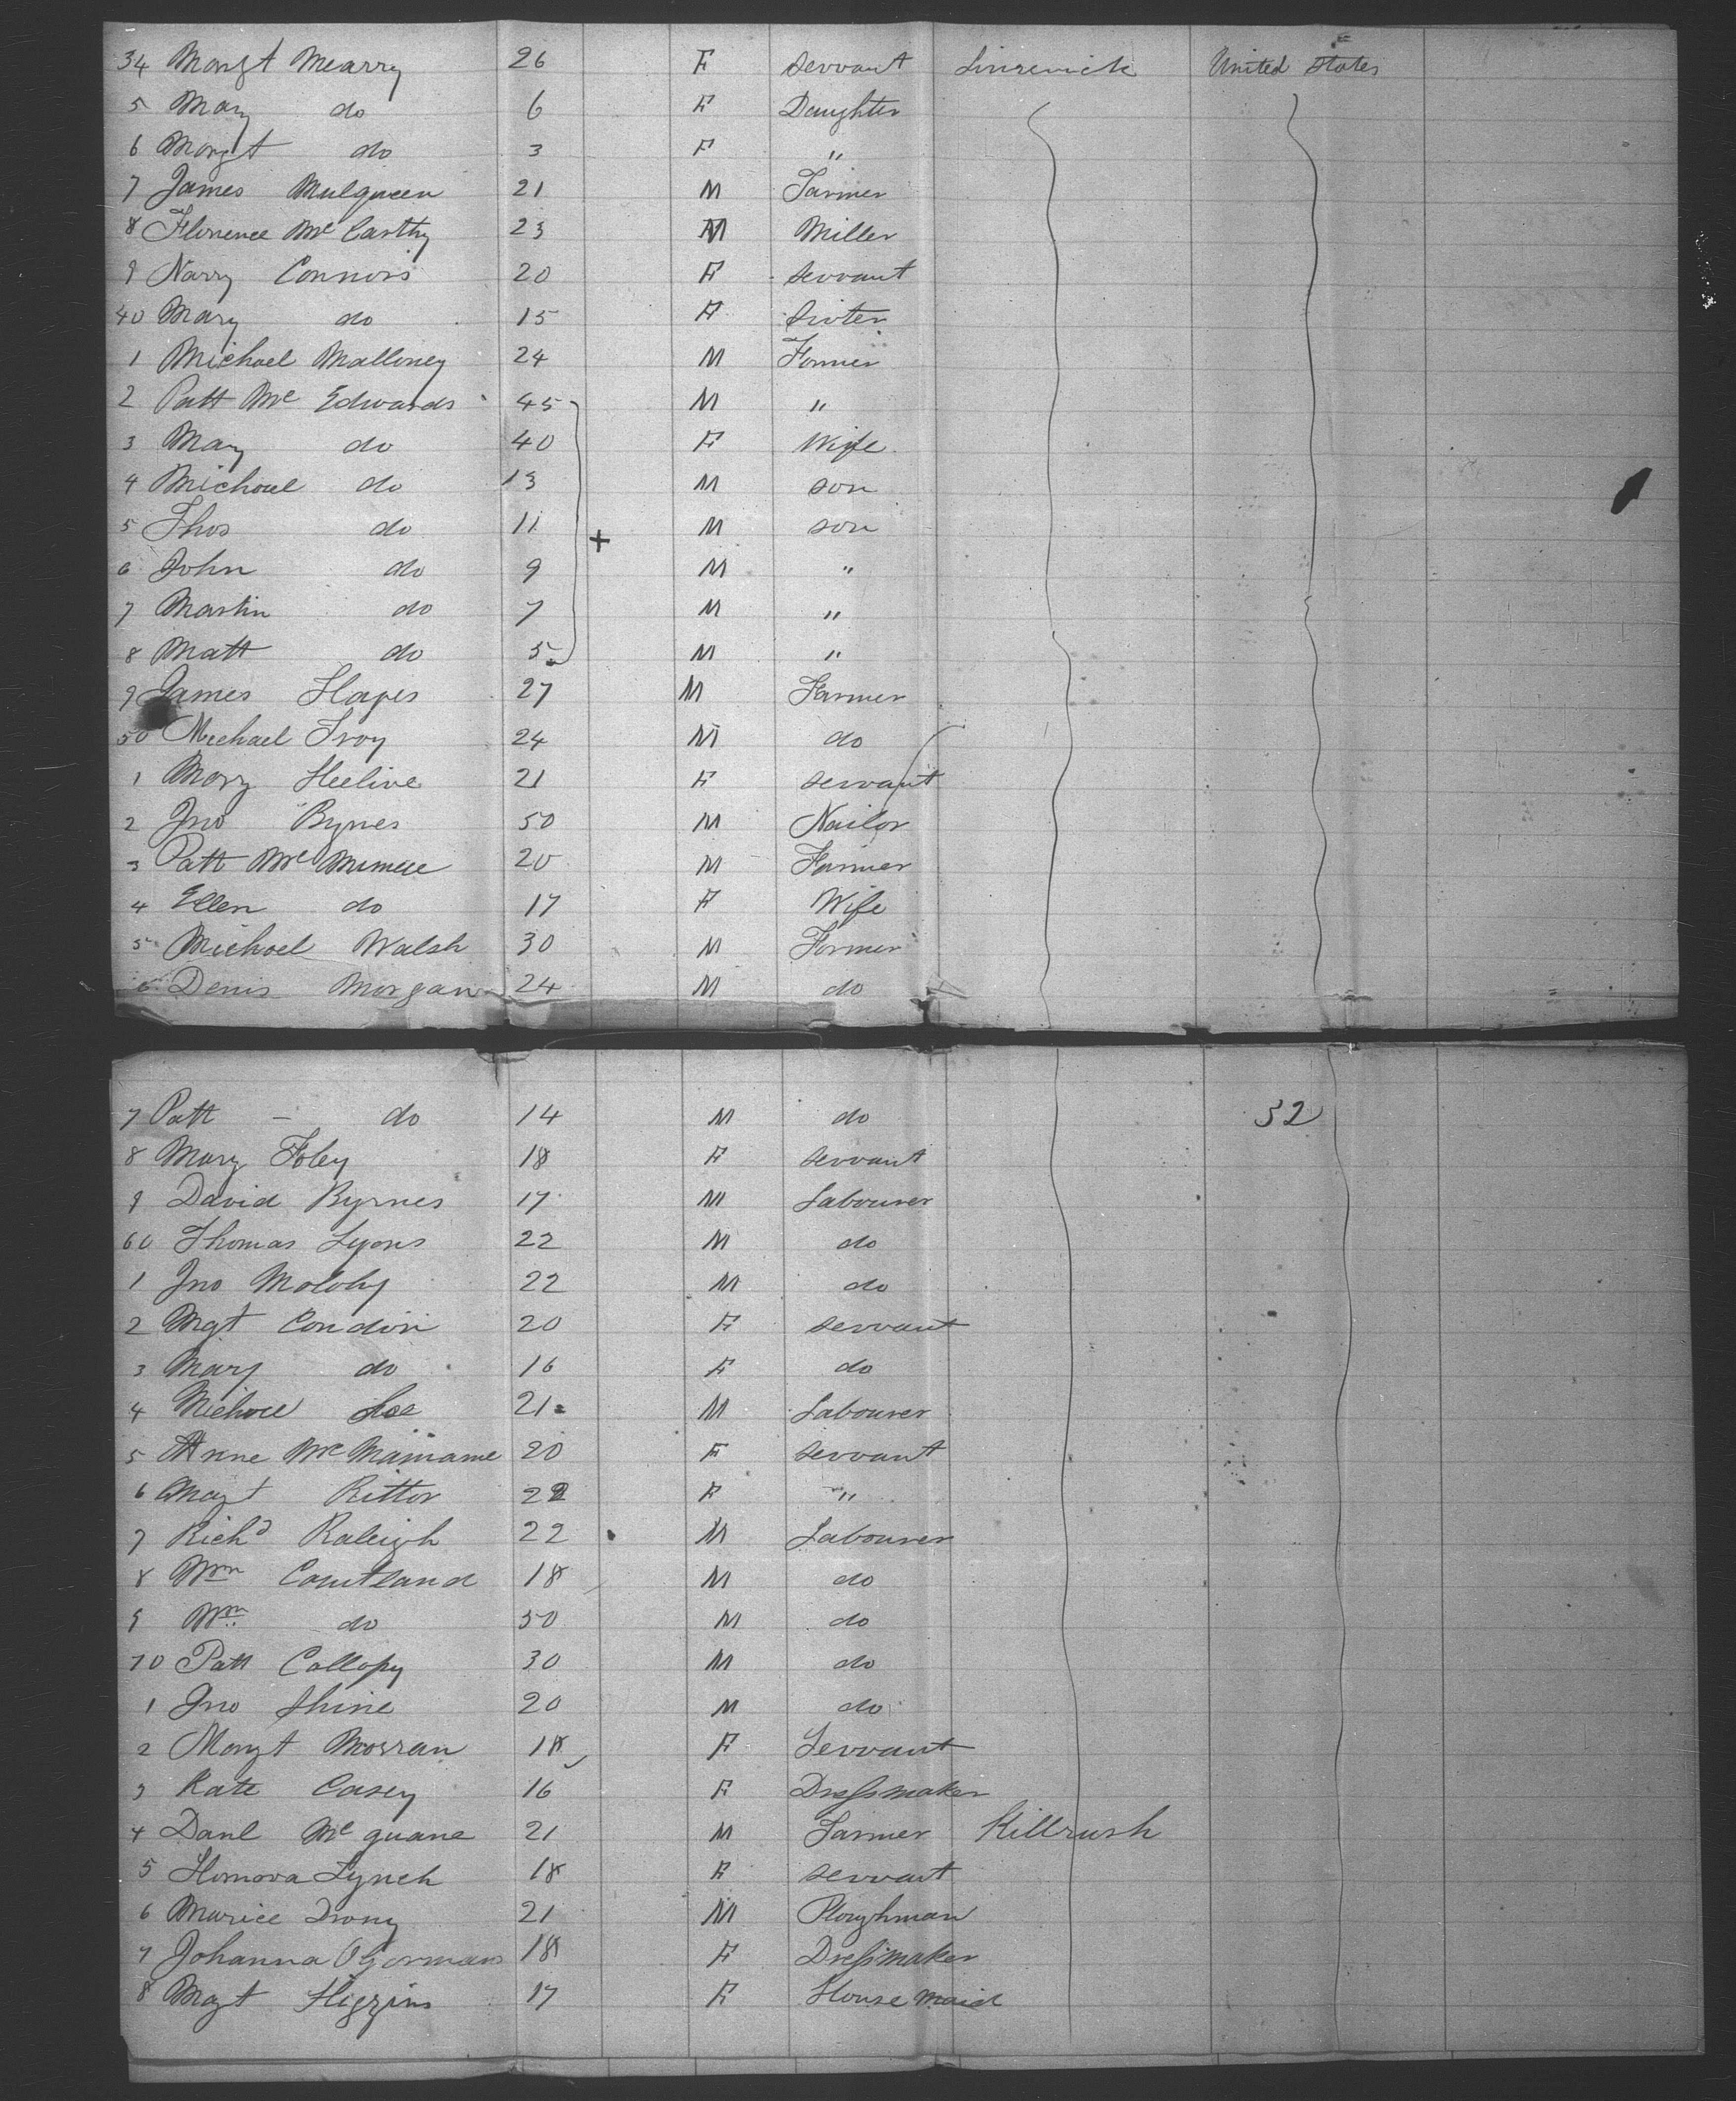 34 Margt Mearry 26 F Servant Limerick United States
5 Mary do 6 F Daughter
6 Margt do 3 F "
7 James Mulqueen 21 M Farmer
8 Florence McCarthy 23 M Miller
9 Connors 20 F Servant
40 Mary do 15 F Sister
1 Michael Malloney 24 M Farmer
2 Patt Mc Edwards 45 M "
3 Mary do 40 F Wife
4 Michael do 13 M son
5 Thos do 11 M son
+
6 John do 9 M "
7 Martin do 7 M "
8 Matt do 5 M "
9 James Hayes 27 M Farmer
50 Michael Troy 24 M do
1 Mary 21 F servant
2 Jno Bynes 50 M Nailor
3 Patt Mc 20 M Farmer
4 Ellen do 17 F Wife
5 Michael Walsh 30 M Farmer
6 Denis Morgan 24 M do
7 Patt - do 14 M do 32
8 Mary Foley 18 F servant
9 David Byrnes 17 M Labourer
60 Thomas Lyons 22 M do
1 Jno Molohy 22 M do
2 Mgt Condon 20 F servant
3 Mary do 16 F do
4 Michael 21 M Labourer
5 Anne Mc 20 F servant
6 Magt Rittor 22 F "
7 Richd Raleigh 22 M Labourer
8 Wm Courtland 18 M do
9 Wm do 50 M do
70 Patt Collopy 30 M do
1 Jno Shine 20 M do
2 Margt Morran 18 F Servant
3 Kate Casey 16 F Dressmaker
4 Danl Mc guane 21 M Farmer Killrush
5 Honora Lynch 18 F servant
6 Murice 21 M Ploughman
7 Johanna O'Gorman 18 F Dressmaker
8 Magt Higgins 17 F House maid